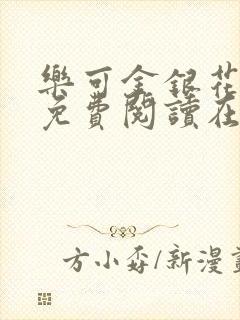 樂可金銀花
免費閱讀在
方小孬/新漫畫